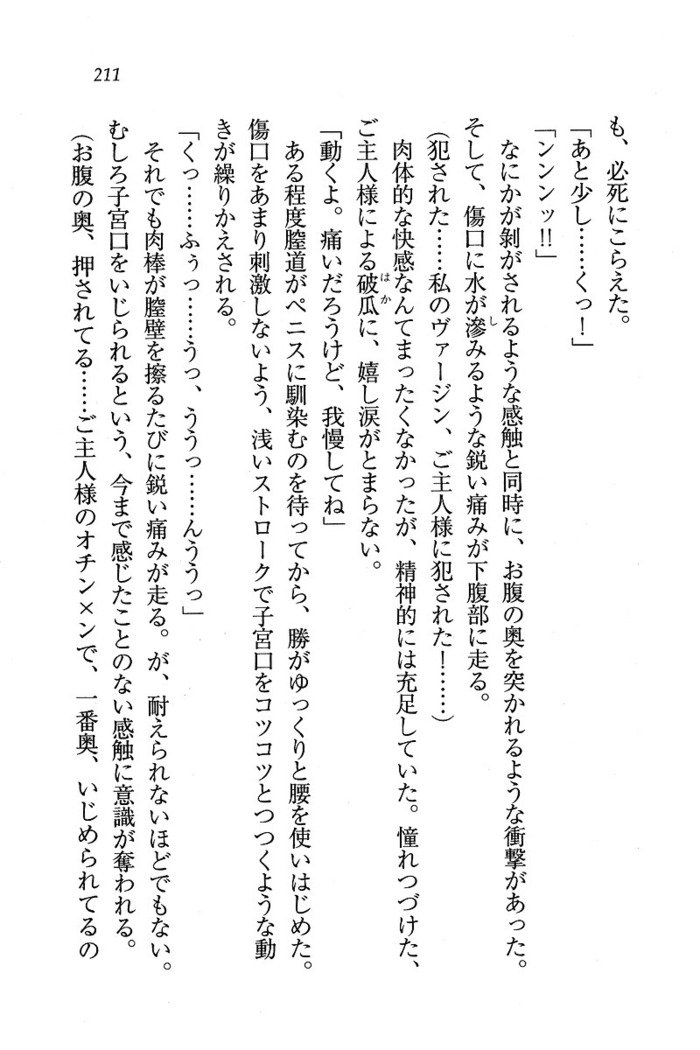 211
も、必死にこらえた。
「あと少し……くっ！」
「ンンンッ!!」
なにかが剝がされるような感触と同時に、お腹の奥を突かれるような衝撃があった。
そして、傷口に水が滲みるような鋭い痛みが下腹部に走る。
（犯された……私のヴァージン、ご主人様に犯された！……）
肉体的な快感なんてまったくなかったが、精神的には充足していた。憧れつづけた、
ご主人様による破瓜に、嬉し涙がとまらない。
「動くよ。痛いだろうけど、我慢してね」
ある程度膣道がペニスに馴染むのを待ってから、勝がゆっくりと腰を使いはじめた。
傷口をあまり刺激しないよう、浅いストロークで子宮口をコツコツとつつくような動
きが繰りかえされる。
「くっ……ふぅっ……うっ、ううっ……んううっ」
それでも肉棒が膣壁を擦るたびに鋭い痛みが走る。が、耐えられないほどでもない。
むしろ子宮口をいじられるという、今まで感じたことのない感触に意識が奪われる。
（お腹の奥、押されてる……ご主人様のオチン×ンで、一番奥、いじめられてるの